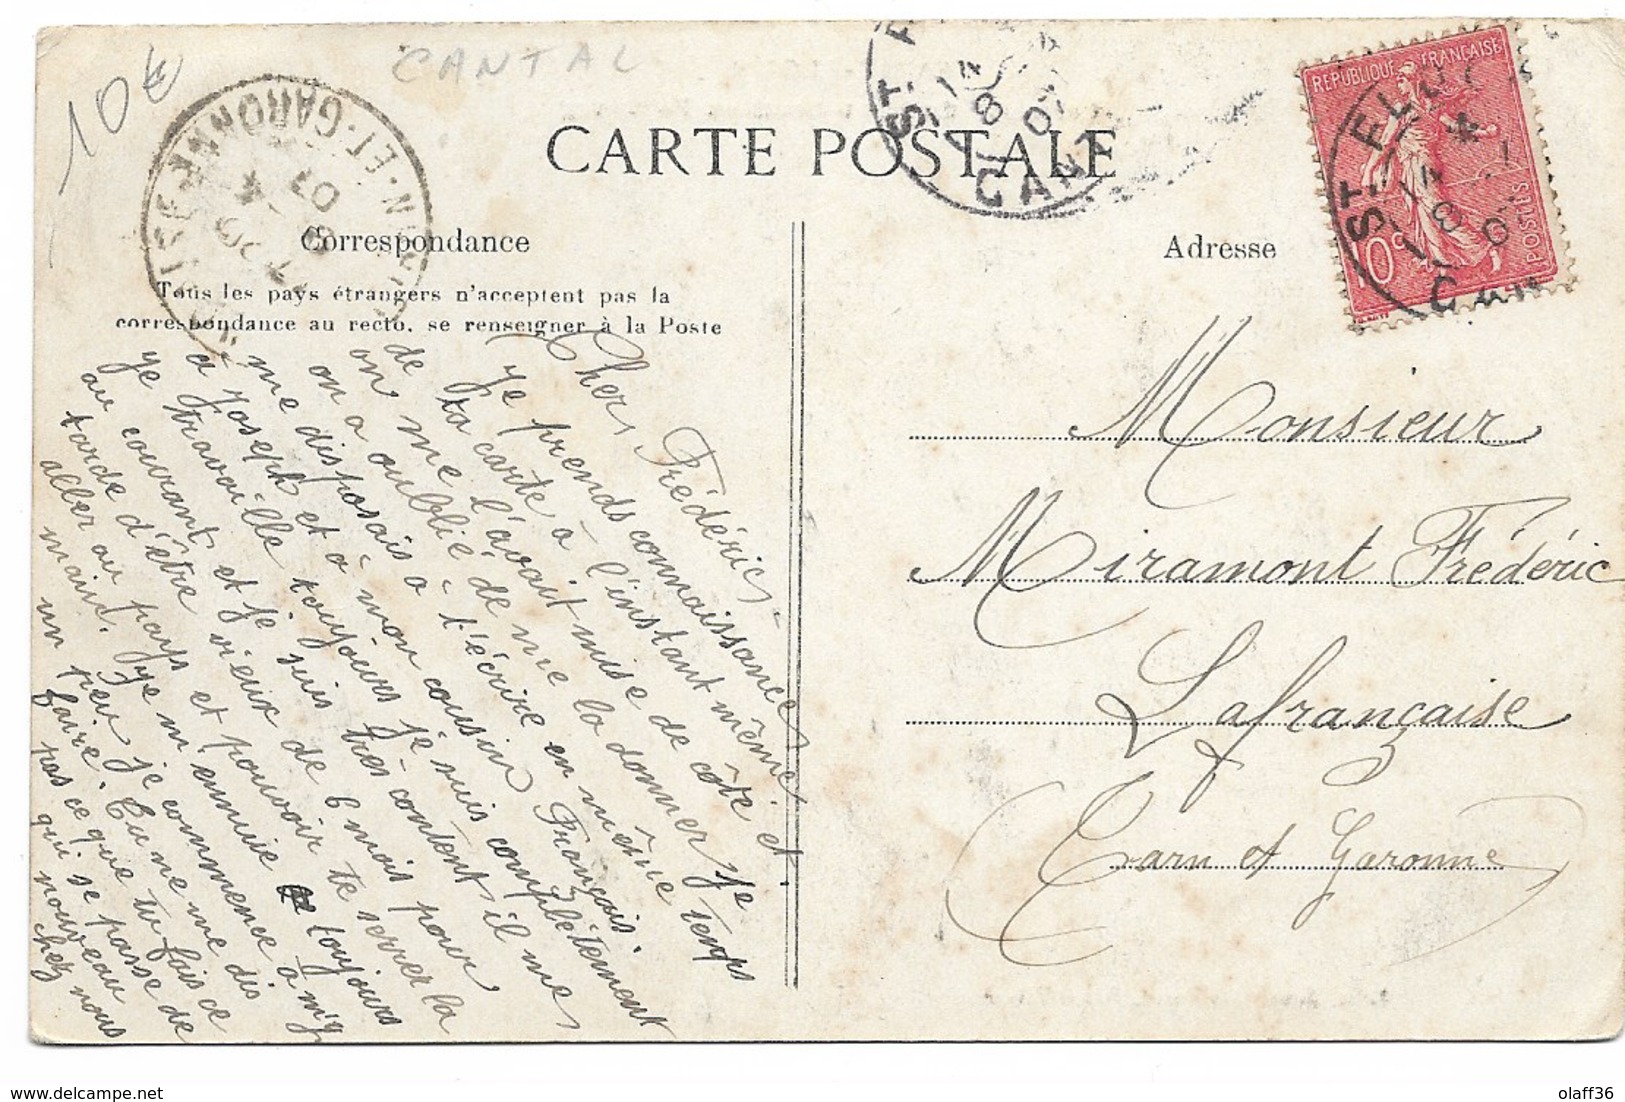 10€
CANTAL
CARTE POSTALE
Correspondance
Tous les pays étrangers n'acceptent pas la
correspondance au recto, se renseigner à la Poste
Adresse
REPUBLIQUE FRANÇAISE
10c
POSTES
ST. FL
14
8
07
CANT
N-ET-GARONNE
07
Cher Frédéric.
Je prends connaissance
de ta carte à l'instant même,
on me l'avait mise de côté et
on a oublié de me la donner. Je
me disposais à t'écrire en même temps
à Joseph et à mon cousin Français.
je travaille toujours je suis complètement
au courant et je suis très content il me
tarde d'être vieux de 6 mois pour
aller au pays et pouvoir te serrer la
main. Je m'ennuie toujours
un peu je commence a m'y
faire. Tu ne me dis
pas ce que tu fais ce
qui se passe de
nouveau
chez nous
Monsieur
Miramont Frédéric
Lafrançaise
(Tarn et Garonne)
olaff36
delcampe.net